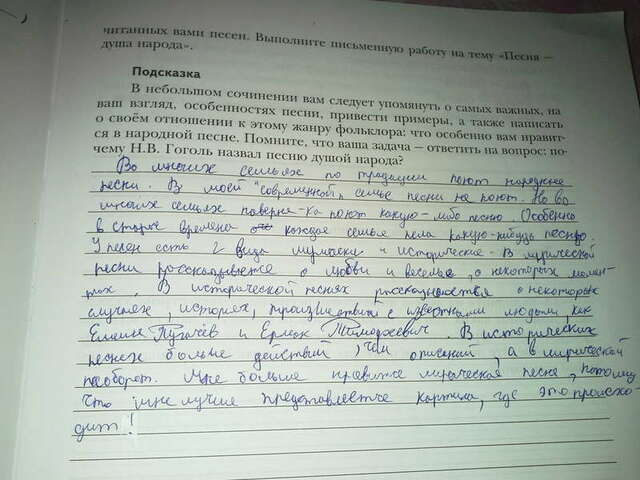 читанных вами песен. Выполните письменную работу на тему «Песня —
душа народа».
Подсказка
В небольшом сочинении вам следует упомянуть о самых важных, на
ваш взгляд, особенностях песни, привести примеры, а также написать
о своём отношении к этому жанру фольклора: что особенно вам нравит-
ся в народной песне. Помните, что ваша задача — ответить на вопрос: по-
чему Н.В. Гоголь назвал песню душой народа?
Во многих семьях по традиции поют народные
песни. В моей "современной" семье песни не поют. Но во
многих семьях наверня-ка поют какую-либо песню. Особенно
в старые времена каждая семья пела какую-нибудь песню.
У песен есть 2 вида и исторические. В лирической
песни рассказывается о любви и веселье, о некоторых момен-
тах. В исторической песнях рассказывается о некоторых
случаях, историях, с известными людьми, как
Емельян Пугачёв и Ермак Тимофеевич. В исторических
песнях больше действий, чем описаний, а в лирической
наоборот. Мне больше лирическая песня, потому
что мне лучше картина, где это происхо-
дит!